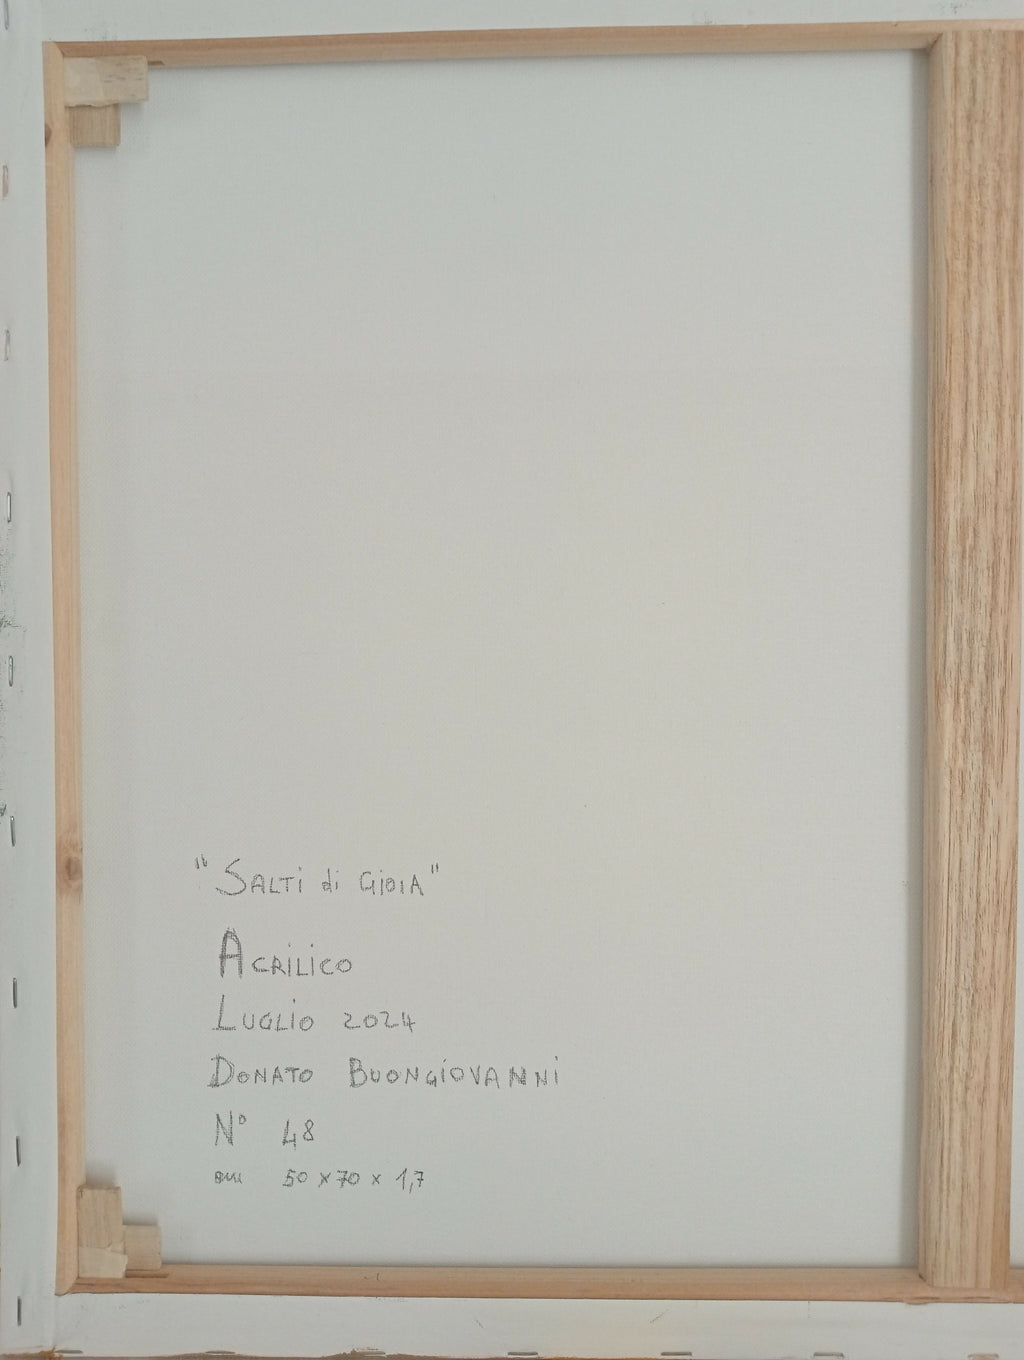 "Salti di Gioia"
Acrilico
Luglio 2024
Donato Buongiovanni
N° 48
cm 50 x 70 x 1,7